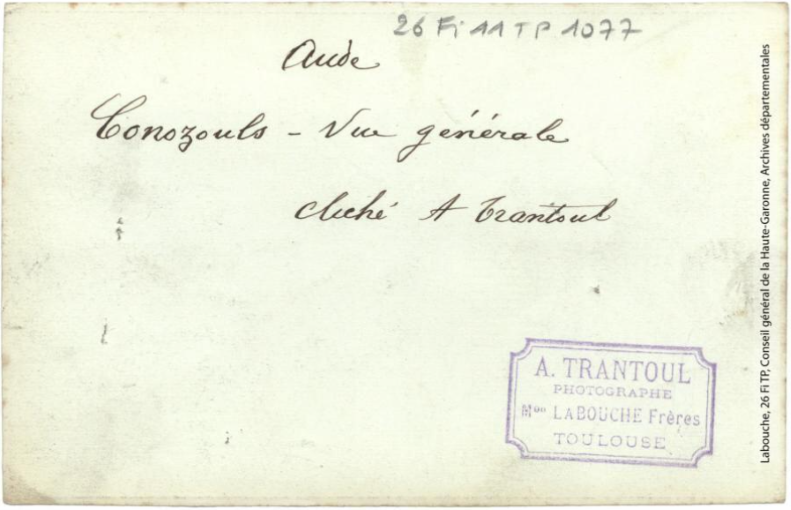 26 Fi 11 TP 1077
Aude
Conozouls - Vue générale
cliché A Trantoul
A. TRANTOUL
PHOTOGRAPHE
Mon LABOUCHE Frères
TOULOUSE
Labouche, 26 Fi TP, Conseil général de la Haute-Garonne, Archives départementales